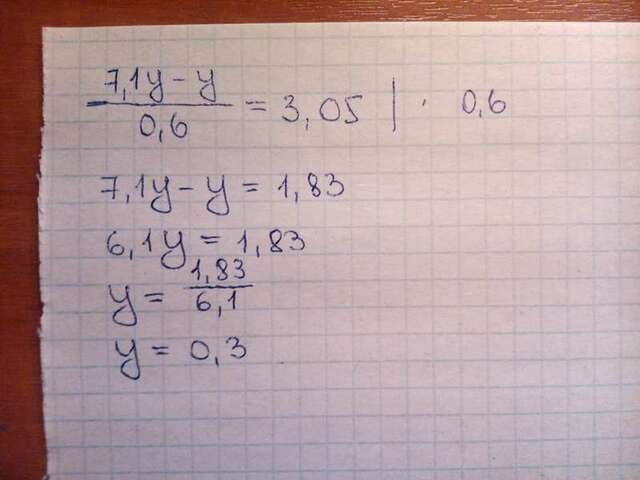 (7,1y - y)/0,6 = 3,05 | · 0,6
7,1y - y = 1,83
6,1y = 1,83
y = 1,83/6,1
y = 0,3